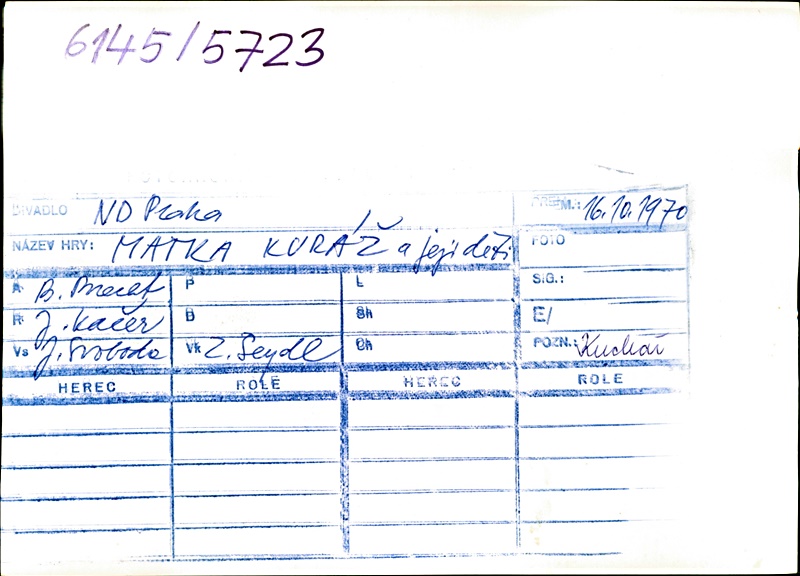 6145/5723
DIVADLO ND Praha PREM.: 16.10.1970
NÁZEV HRY: MATKA KURÁŽ a její děti FOTO
A B. Brecht P L SIG.:
R J. Kačer D Sh E/
Vs J. Svoboda Vk Z. Seydl Ch POZN.: Kuchař
HEREC ROLE HEREC ROLE